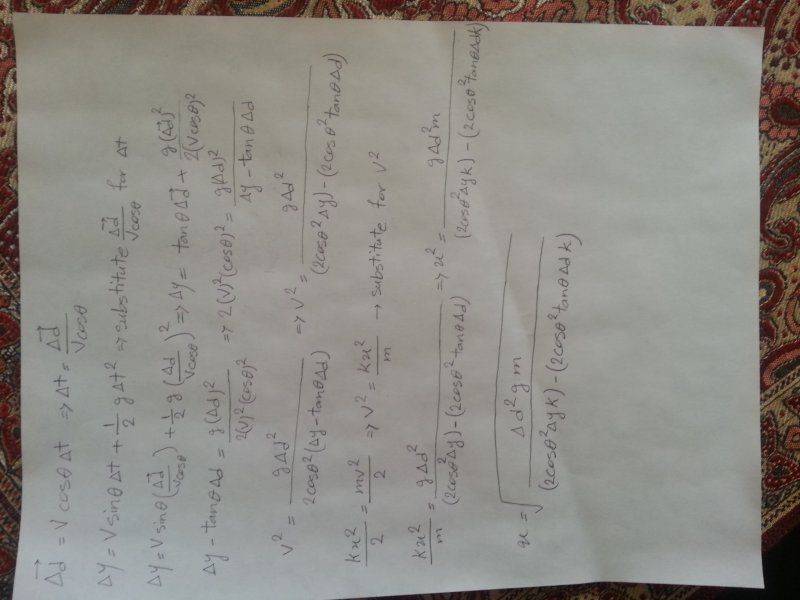 Δd⃗ = V cosθ Δt ⇒ Δt = Δd⃗ / Vcosθ
Δy = V sinθ Δt + 1/2 g Δt² ⇒ substitute Δd⃗ / Vcosθ for Δt
Δy = V sinθ (Δd⃗ / Vcosθ) + 1/2 g (Δd⃗ / Vcosθ)² ⇒ Δy = tanθ Δd⃗ + g(Δd⃗)² / 2(Vcosθ)²
Δy - tanθ Δd = g(Δd)² / 2(V)²(cosθ)² ⇒ 2(V)²(cosθ)² = g(Δd)² / Δy - tanθ Δd
V² = gΔd² / 2cosθ²(Δy - tanθΔd) ⇒ V² = gΔd² / (2cosθ²Δy) - (2cosθ²tanθΔd)
kx²/2 = mv²/2 ⇒ V² = kx²/m → substitute for V²
kx²/m = gΔd² / (2cosθ²Δy) - (2cosθ²tanθΔd) ⇒ x² = gΔd²m / (2cosθ²Δyk) - (2cosθ²tanθΔdk)
x = √(Δd²gm / (2cosθ²Δyk) - (2cosθ²tanθΔdk))